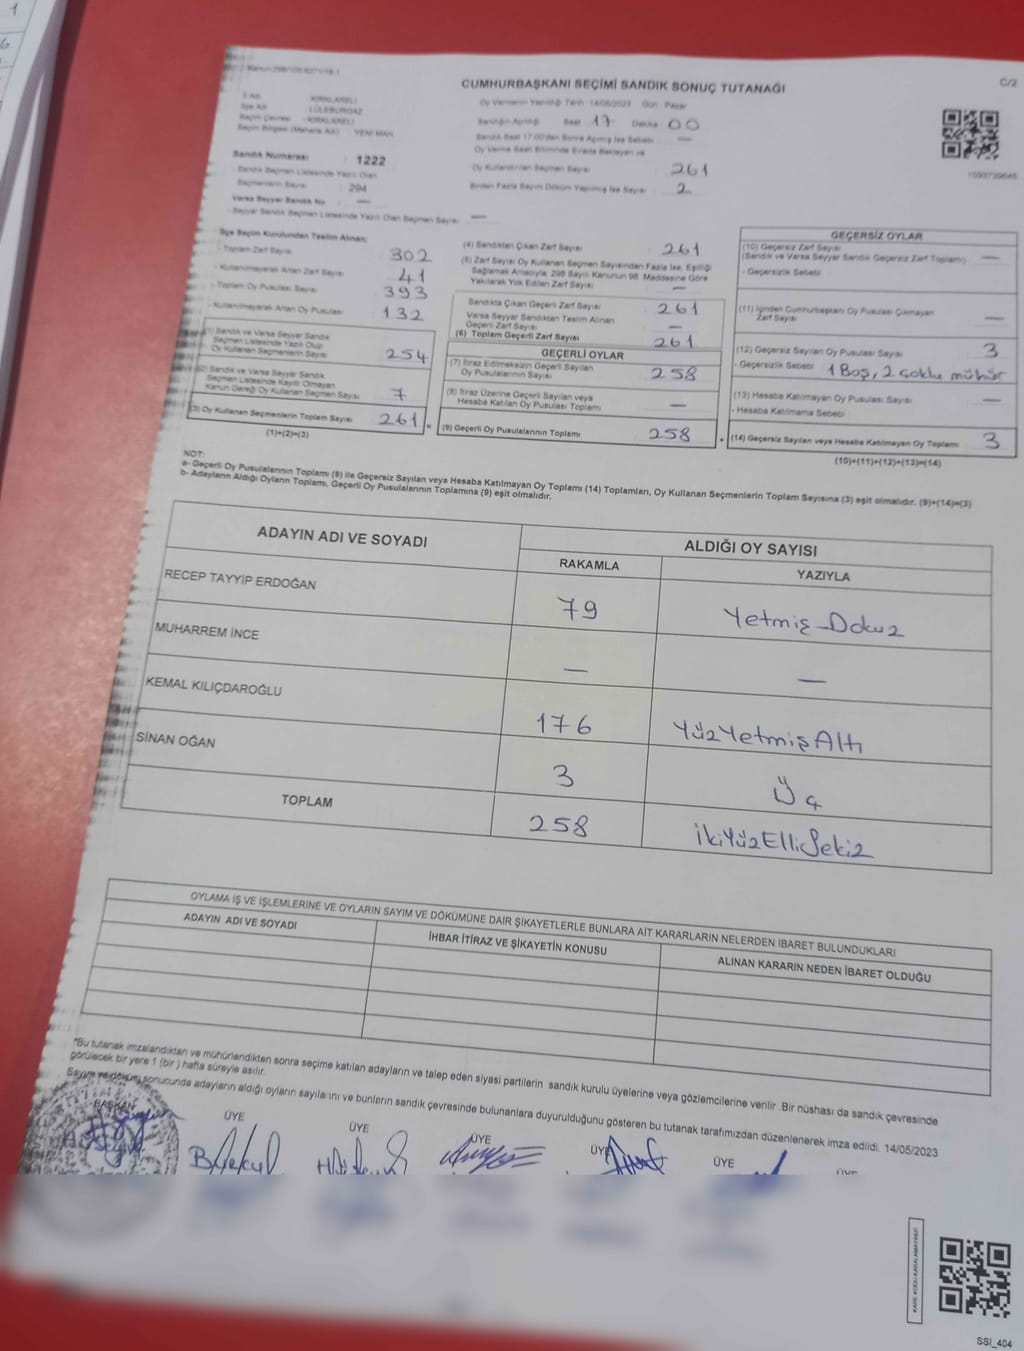 CUMHURBAŞKANI SEÇİMİ SANDIK SONUÇ TUTANAĞI
C/2
İl Adı : KIRKLARELİ
İlçe Adı : LÜLEBURGAZ
Seçim Çevresi : KIRKLARELİ
Seçim Bölgesi (Mahalle Adı) : YENİ MAH.
Sandık Numarası : 1222
Sandık Seçmen Listesinde Yazılı Olan
Seçmenlerin Sayısı : 294
Varsa Seyyar Sandık No : —
Seyyar Sandık Seçmen Listesinde Yazılı Olan Seçmen Sayısı : —
Oy Vermenin Yapıldığı Tarih : 14/05/2023 Gün : Pazar
Sandığın Açıldığı Saat 17 Dakika 00
Sandık Saat 17:00'den Sonra Açılmış İse Sebebi : —
Oy Verme Saati Bitiminde Sırada Bekleyen ve
Oy Kullandırılan Seçmen Sayısı 261
Birden Fazla Sayım Döküm Yapılmış İse Sayısı : 2
İlçe Seçim Kurulundan Teslim Alınan;
- Toplam Zarf Sayısı 302
- Kullanılmayarak Artan Zarf Sayısı 41
- Toplam Oy Pusulası Sayısı 393
- Kullanılmayarak Artan Oy Pusulası 132
(1) Sandık ve Varsa Seyyar Sandık
Seçmen Listesinde Yazılı Olup
Oy Kullanan Seçmenlerin Sayısı 254
(2) Sandık ve Varsa Seyyar Sandık
Seçmen Listesinde Kayıtlı Olmayan
Kanun Gereği Oy Kullanan Seçmen Sayısı 7
(3) Oy Kullanan Seçmenlerin Toplam Sayısı 261
(1)+(2)=(3)
(4) Sandıktan Çıkan Zarf Sayısı 261
(5) Zarf Sayısı Oy Kullanan Seçmen Sayısından Fazla İse, Eşitliği
Sağlamak Amacıyla, 298 Sayılı Kanunun 98. Maddesine Göre
Yakılarak Yok Edilen Zarf Sayısı —
Sandıkta Çıkan Geçerli Zarf Sayısı 261
Varsa Seyyar Sandıktan Teslim Alınan
Geçerli Zarf Sayısı —
(6) Toplam Geçerli Zarf Sayısı 261
GEÇERLİ OYLAR
(7) İtiraz Edilmeksizin Geçerli Sayılan
Oy Pusulalarının Sayısı 258
(8) İtiraz Üzerine Geçerli Sayılan veya
Hesaba Katılan Oy Pusulası Toplamı —
(9) Geçerli Oy Pusulalarının Toplamı 258
GEÇERSİZ OYLAR
(10) Geçersiz Zarf Sayısı
(Sandık ve Varsa Seyyar Sandık Geçersiz Zarf Toplamı) —
- Geçersizlik Sebebi
(11) İçinden Cumhurbaşkanı Oy Pusulası Çıkmayan
Zarf Sayısı —
(12) Geçersiz Sayılan Oy Pusulası Sayısı 3
- Geçersizlik Sebebi : 1 Boş, 2 çoklu mühür
(13) Hesaba Katılmayan Oy Pusulası Sayısı —
- Hesaba Katılmama Sebebi
(14) Geçersiz Sayılan veya Hesaba Katılmayan Oy Toplamı 3
(10)+(11)+(12)+(13)=(14)
NOT:
a- Geçerli Oy Pusulalarının Toplamı (9) ile Geçersiz Sayılan veya Hesaba Katılmayan Oy Toplamı (14) Toplamları, Oy Kullanan Seçmenlerin Toplam Sayısına (3) eşit olmalıdır. (9)+(14)=(3)
b- Adayların Aldığı Oyların Toplamı, Geçerli Oy Pusulalarının Toplamına (9) eşit olmalıdır.
ADAYIN ADI VE SOYADI ALDIĞI OY SAYISI
RAKAMLA YAZIYLA
RECEP TAYYİP ERDOĞAN 79 Yetmiş Dokuz
MUHARREM İNCE — —
KEMAL KILIÇDAROĞLU 176 YüzYetmişAltı
SİNAN OĞAN 3 Üç
TOPLAM 258 İkiYüzElliSekiz
OYLAMA İŞ VE İŞLEMLERİNE VE OYLARIN SAYIM VE DÖKÜMÜNE DAİR ŞİKAYETLERLE BUNLARA AİT KARARLARIN NELERDEN İBARET BULUNDUKLARI
ADAYIN ADI VE SOYADI İHBAR İTİRAZ VE ŞİKAYETİN KONUSU ALINAN KARARIN NEDEN İBARET OLDUĞU
*Bu tutanak imzalandıktan ve mühürlendikten sonra seçime katılan adayların ve talep eden siyasi partilerin sandık kurulu üyelerine veya gözlemcilerine verilir .Bir nüshası da sandık çevresinde
görülecek bir yere 1 (bir ) hafta süreyle asılır.
Sayım ve döküm sonucunda adayların aldığı oyların sayılarını ve bunların sandık çevresinde bulunanlara duyurulduğunu gösteren bu tutanak tarafımızdan düzenlenerek imza edildi. 14/05/2023
BAŞKAN ÜYE ÜYE ÜYE ÜYE ÜYE ÜYE
KARE KODU KARALAMAYINIZ!
SSI_404